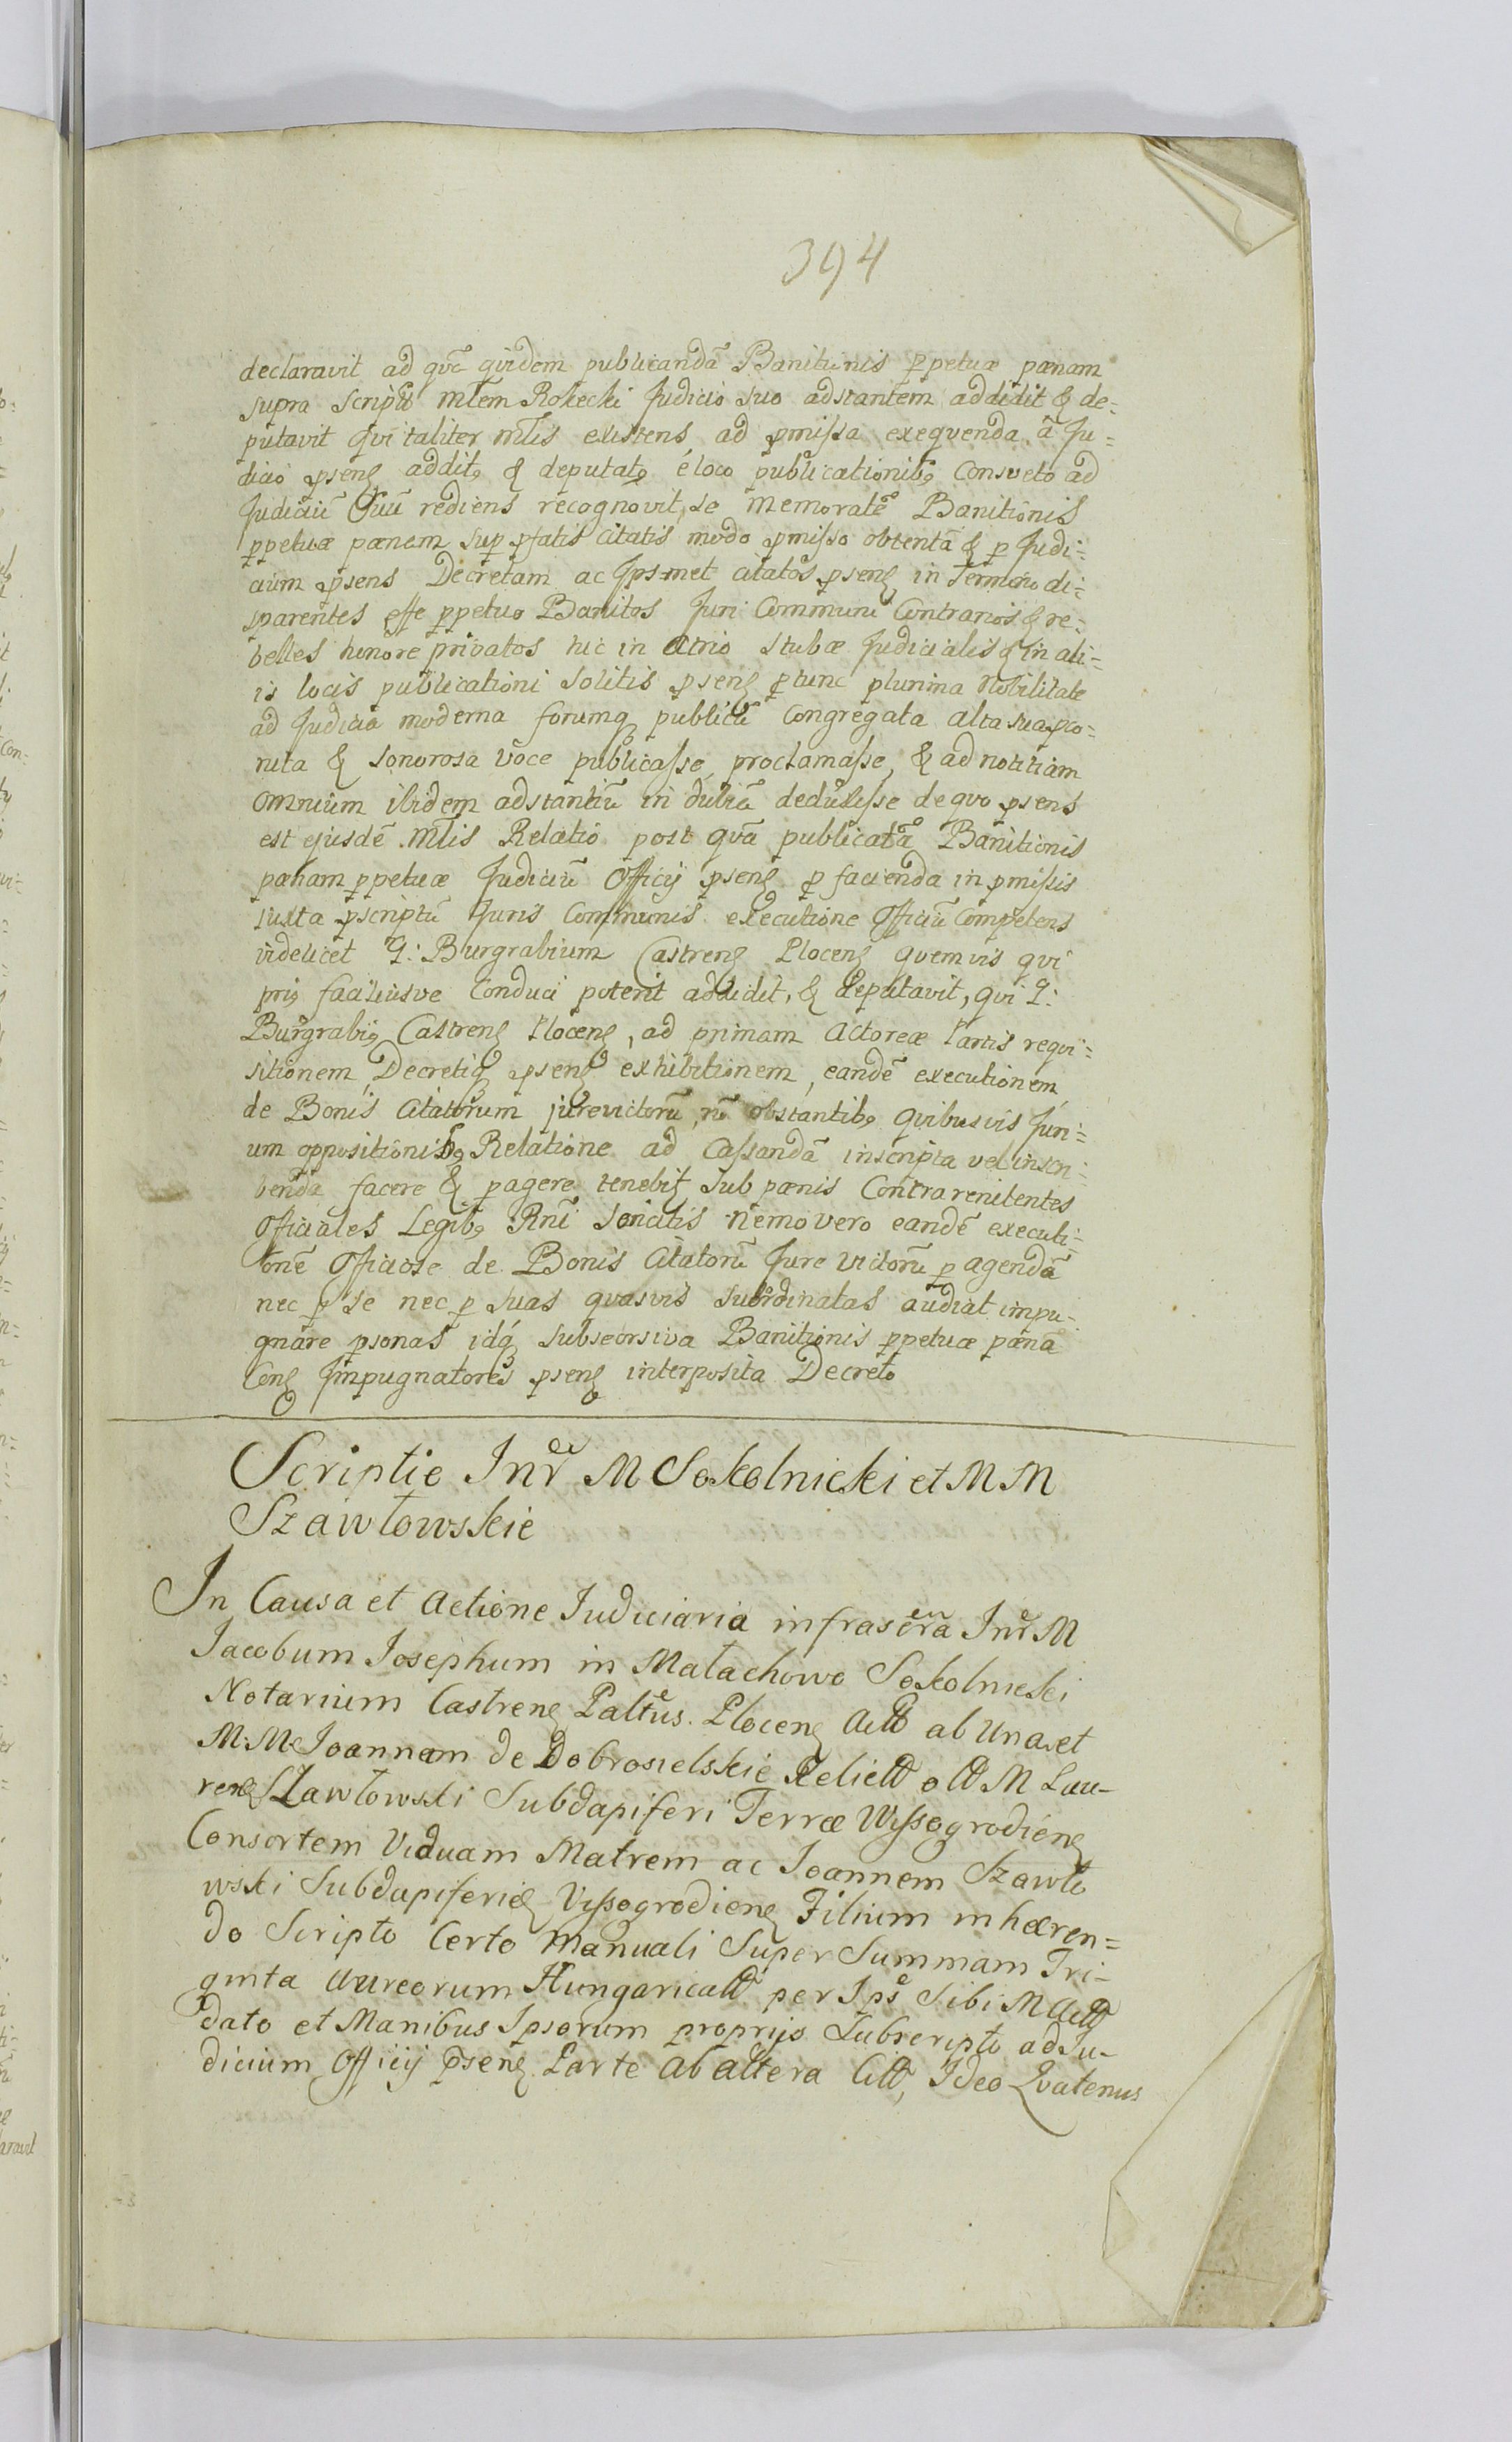 394
declaravit ad qvē qvidem publicandā Banitionis ppetuæ pænam
supra Script̄ Mlem Rokecki Judicio suo adstantem addidit & de=
putavit qvi taliter Mlis existens, ad pmissa exeqvenda â Ju=
dicio psenſ additꝰ & deputatꝰ é loco publicationibꝰ Consveto ad
Judiciū Suū rediens recognovit, se memoratē Banitionis
ppetuæ pænam sup pfatis Citatis modo pmisso obtentā & p Judi=
cium psens Decretam ac Ipsmet citatos psenſ in Termino di=
sparentes esse ppetuo Banitos Juri Communi Contrarios & re=
belles honore privatos hic in Atrio Stubæ Judicialis & in ali=
is locis publicationi Solitis psenſ ptunc plurima Nobilitate
ad Judicia moderna forumqꝫ publicū Congregata alta sua pro=
nuta & sonorosa voce publicasse, proclamasse, & ad notitiam
omnium ibidem adstantiū in dubiā deduxisse de qvo psens
est ejusdē Mlis Relatio post qvā publicatā Banitionis
pænam ppetuæ Judiciū Officij psenſ p facienda in pmissis
juxta pscriptū Juris Communis executione Officiū Competens
videlicet G: Burgrabium Castrenſ Plocenſ qvemvis qvi
priꝰ faciliusve Conduci poterit addidit, & deputavit, qvi G:
Burgrabiꝰ Castrenſ Plocenſ, ad primam Actoreæ Partis reqvi=
sitionem, Decretiqꝫ psenſ exhibitionem, eandē executionem
de Bonis Citatorum jurevictorū, nō obstantibꝰ qvibusvis Juri=
um oppositionibꝰ Relatione ad Cassandā inscripta vel inscri=
benda facere & pagere tenebit̄ sub pænis Contra renitentes
Officiales Legibꝰ Rnī Sancitis nemo vero eandē executi=
onē Officiose de Bonis Citatorū Jure victorū p agendā
nec p se nec p suas qvasvis subordinatas audiat impu=
gnare psonas idqꝫ sub seorsiva Banitionis ppetuæ pænā
Conſ Impugnatores psenſ interposita Decreto
Scriptio Inr̄ M Sokolnicki et M M
Szawłowskie
In Causa et Actione Judiciaria infrascr̄a Inr̄ M
Jacobum Josephum in Małachowo Sokolnicki
Notarium Castrenſ Paltus. Plocenſ Act̄ ab Una et
M:M: Joannam de Dobrosielskie Relict̄ olt̄ M Lau=
renſ Szawłowski Subdapiferi Terræ Wyssogrodienſ
Consortem Viduam Matrem ac Joannem Szawło
wski Subdapiferid̄ Vyssogrodienſ Filium inhæren=
do Scripto Certo Manuali Super Summam Tri=
ginta Aureorum Hungarical̄ per Ips̄ Sibi M Act̄
dato et Manibus Ipsorum proprijs Subscripto ad Ju=
dicium Officij p̄senſ Parte Ab altera Cit̄, Ideo Qvatenus